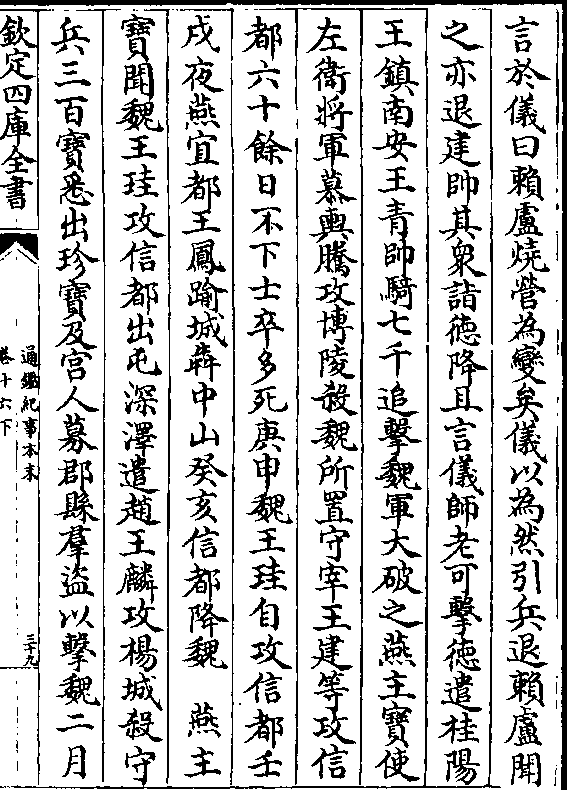 言於儀曰賴盧燒營為變矣儀以為然引兵退賴盧聞
之亦退建帥其衆詣徳降且言儀師老可擊徳遣桂陽
王鎮南安王青帥騎七千追擊魏軍大破之燕主寳使
左衛將軍慕輿騰攻博陵殺魏所置守宰王建等攻信
都六十餘日不下士卒多死庚申魏王珪自攻信都壬
戌夜燕宜都王鳳踰城犇中山癸亥信都降魏　燕主
寳聞魏王珪攻信都出屯深澤遣趙王麟攻楊城殺守
兵三百寳悉出珍寳及宫人募郡縣羣盗以擊魏二月
欽定四庫全書
通鑑紀事本末
卷十六下
三十九